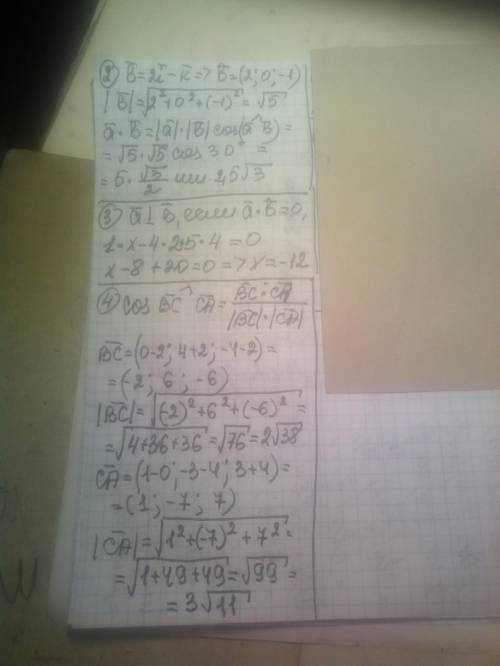 ② b̅=2i̅-k̅=>b̅=(2;0;-1)
|b̅|=√(2²+0²+(-1)²)=√5
a̅·b̅=|a̅|·|b̅|cos(a̅^b̅)=
=√5·√5 cos30°=
=5·√3/2 или 2,5√3
③ a̅⊥b̅, если a̅·b̅=0,
1·x-4·2+5·4=0
x-8+20=0=>x=-12
④ cos B̅C̅^C̅A̅=B̅C̅·C̅A̅/|B̅C̅|·|C̅A̅|
B̅C̅=(0-2; 4+2; -4-2)=
=(-2; 6; -6)
|B̅C̅|=√((-2)²+6²+(-6)²)=
=√(4+36+36)=√76=2√38
C̅A̅=(1-0; -3-4; 3+4)=
=(1; -7; 7)
|C̅A̅|=√(1²+(-7)²+7²)=
=√(1+49+49)=√99=
=3√11